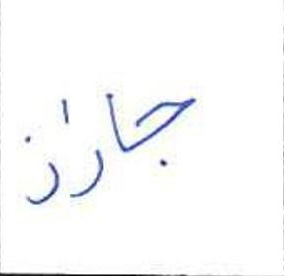 جارز